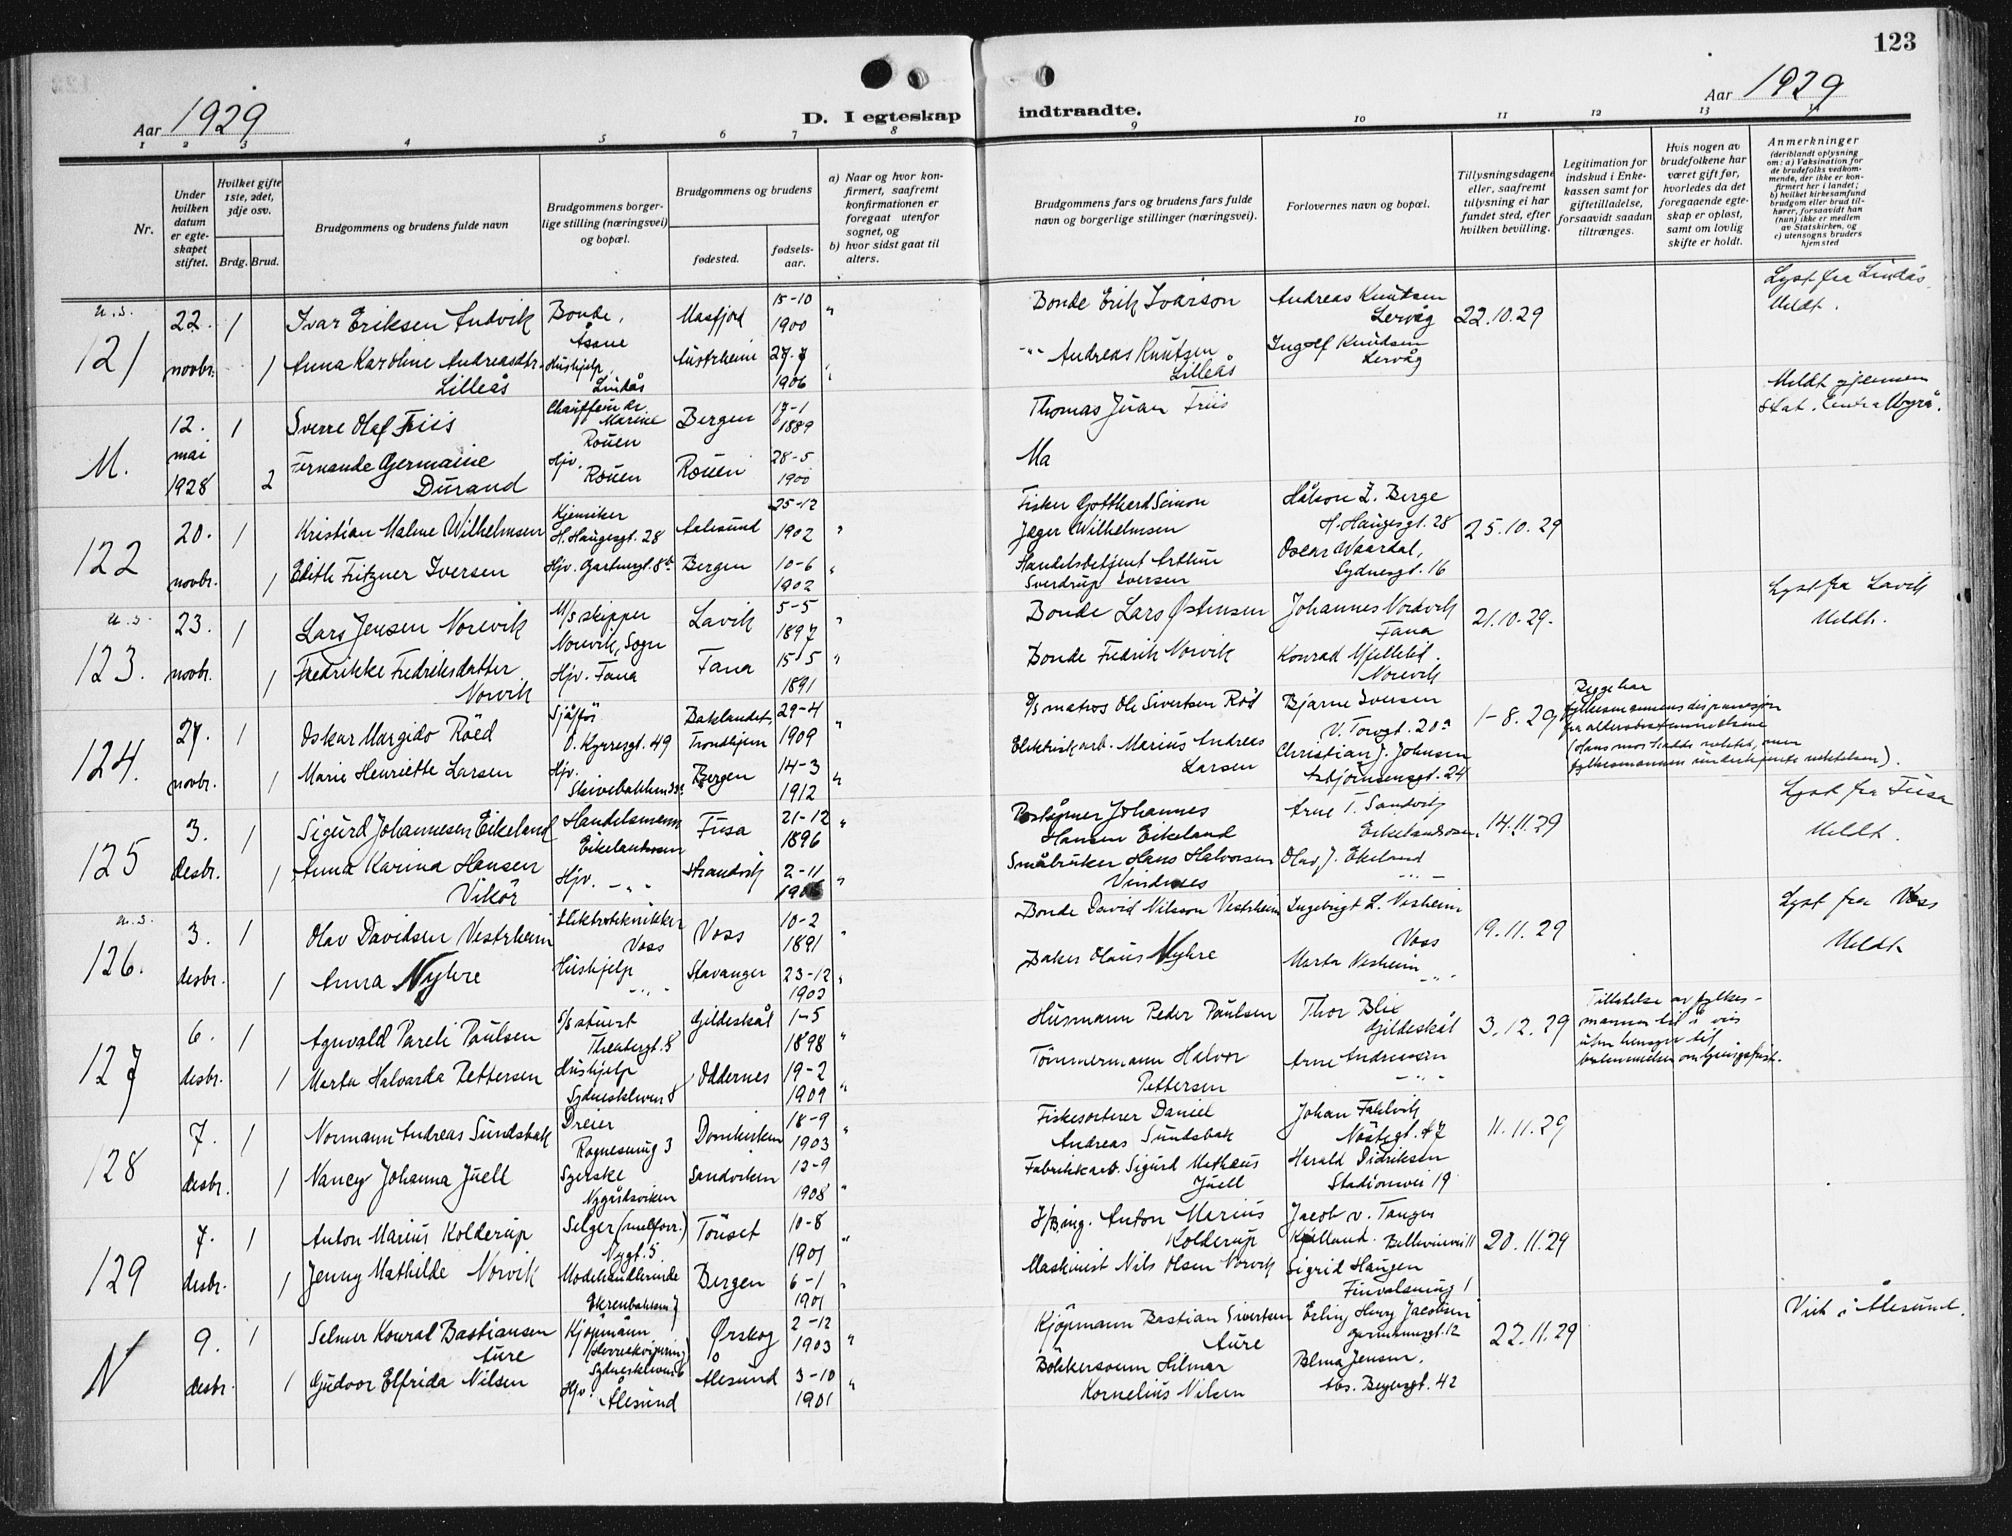 123
Aar 1929
D. I egteskap indtraadte.
Aar 1929
1 2 3 4 5 6 7 8 9 10 11 12 13 14
Nr.
Under hvilken datum er egteskapet stiftet.
Hvilket gifte 1ste, 2det, 3dje osv.
Brdg. Brud.
Brudgommens og brudens fulde navn
Brudgommens borgerlige stilling (næringsvei) og bopæl.
Brudgommens og brudens
fødested.
fødselsaar.
a) Naar og hvor konfirmert, saafremt konfirmationen er foregaat utenfor sognet, og
b) hvor sidst gaat til alters.
Brudgommens fars og brudens fars fulde navn og borgerlige stillinger (næringsvei).
Forlovernes navn og bopæl.
Tillysningsdagene eller, saafremt tillysning ei har fundet sted, efter hvilken bevilling.
Legitimation for indskud i Enkekassen samt for giftetilladelse, forsaavidt saadan tiltrænges.
Hvis nogen av brudefolkene har været gift før, hvorledes da det foregaaende egteskap er opløst, samt om lovlig skifte er holdt.
Anmerkninger
(deriblandt oplysning om: a) Vaksination for de brudefolks vedkommende, der ikke er konfirmert her i landet; b) hvilket kirkesamfund brudgom eller brud tilhører, forsaavidt han (hun) ikke er medlem av Statskirken, og c) utensogns bruders hjemsted
u.s.
121
22. novbr. 1 Ivar Eriksen Andvik Bonde, Åsane Masfjord 15-10 1900 " Bonde Erik Ivarson Andreas Knutsen Lervåg 22.10.29 Lyst fra Lindås. Meldt.
1 Anna Karoline Andreasdtr. Lilleås Hushjelp, Lindås Austrheim 27-7 1906 " -"- Andreas Knutsen Lilleås Ingolf Knudsen Lervåg
M.
12. mai 1928 1 Sverre Olaf Friis Chauffeur de Marine Rouen Bergen 17-1 1889 Thomas Juan Friis Meldt gjennem Stat. Centralbyrå.
2 Fernande Germaine Durand Hjv. Rouen Rouen 28-5 1900 Ma
122
20. novbr. 1 Kristian Malme Wilhelmsen Kjemiker H. Haugesgt. 28 Aalesund 25-12 1902 " Fisker Gotthard Simon Jæger Wilhelmsen Håkon Z. Berge H. Haugesgt. 28 25.10.29
1 Edith Fritzner Iversen Hjv. Gartnergt. 8b Bergen 10-6 1902 " Handelsbetjent Arthur Sverdrup Iversen Oscar Waardal, Sydnesgt. 16
u.s.
123.
23. novbr. 1 Lars Jensen Norevik M/s skipper Norevik, Sogn Lavik 5-5 1897 " Bonde Lars Østensen Johannes Nordvik Fana 21.10.29. Lyst fra Lavik Meldt.
1 Fredrikke Fredriksdatter Norvik Hjv. Fana Fana 15-5 1891 " Bonde Fredrik Norvik Konrad Mjelleld. Norevik
124.
27. novbr. 1 Oskar Margido Röed Sjåfør O. Kyrresgt. 49 Baklandet, Trondhjem 29-4 1909 " S/s matros Ole Sivertsen Rød Bjarne Iversen V. Torvgt. 20a 1-8.29 Begge har fylkesmannens dispensasjon fra aldersbestemmelsene (Hans mor hadde nektet, men fylkesmannen underkjente nektelsen).
1 Marie Henriette Larsen Hjv. Skivebakken Bergen 14-3 1912 " Elektriskarb. Marius Andreas Larsen Christian J. Johnsen Asbjörnsensgt. 24
125
3. desbr. 1 Sigurd Johannesen Eikeland Handelsmann Eikelandsosen Fusa 21-12 1896 " Poståpner Johannes Hansen Eikeland Arne T. Sandvik Eikelandsosen 14.11.29 Lyst fra Fusa Meldt.
1 Anna Karina Hansen Vikör Hjv. -"- Strandvik 2-11 " Småbruker Hans Halvorsen Vindenes Olav J. Ekeland -"-
u.s.
126.
3. desbr. 1 Olav Davidsen Vestrheim Elektrotekniker Voss Voss 10-2 1891 " Bonde David Nilsson Vestrheim Ingebrigt L. Vesheim Voss 19.11.29 Lyst fra Voss Meldt.
1 Anna Nyhre Hushjelp -"- Stavanger 23-12 1903 " Baker Olaus Nyhre Marta Vesheim -"-
127
6. desbr. 1 Agnvald Pareli Paulsen S/s stuert Theatergt. 8 Gildeskål 1-5 1898 " Husmann Peder Paulsen Thor Blix Gildeskål 3.12.29 Tillatelse av fylkesmannen til å vies uten hensyn til bestemmelsen om lysingsfrist.
1 Marta Halvarda Pettersen Hushjelp Sydneskleven 8 Oddernes 19-2 1909 " Tömmermann Halvor Pettersen Arne Andreassen -"-
128
7. desbr. 1 Normann Andreas Sundsbak Dreier Rognesmug 3 Domkirken 18-9 1903 " Fiskesorterer Daniel Andreas Sundsbak Johan Fahlvik Nöstegt. 47 11.11.29
1 Nancy Johanna Juell Syerske Nygårdsviken Sandviken 12-9 1908 " Fabrikkarb. Sigurd Matheus Juell Harald Didriksen Stadionvei 19
129
7. desbr. 1 Anton Marius Kolderup Selger (melforr.) Nygt. 5 Tönset 10-8 1901 " Anton Marius Kolderup Jacob v. Tangen Kjelland. Bellevuevei 11 20.11.29
1 Jenny Mathilde Norvik Modehandlerinde Ekrenbakken 7 Bergen 6-1 1901 " Maskinist Nils Olsen Norvik Sigrid Haugen Finvolsmug 1
N
9. desbr. 1 Selmer Konrad Bastiansen Aure Kjöpmann (Herreekvipering) Sydneskleven 6 Ørskog 2-12 1903 " Kjöpmann Bastian Sivertsen Aure Erling Henry Jacobsen 12 22.11.29 Viet i Ålesund.
1 Gudvor Elfrida Nilsen Hjv. Ålesund Alesund 3-10 1901 " Bökkersvenn Hilmar Kornelius Nilsen Jensen, Abs. Beyersgt. 42